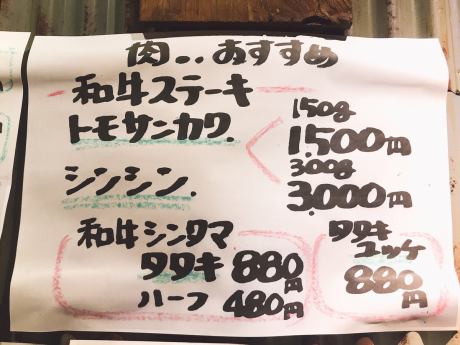 肉‥おすすめ
和牛ステーキ
トモサンカク.
150g
1.500円
300g
3.000円
シンシン.
和牛シンタマ
タタキ 880円
ハーフ 480円
タタキ
ユッケ
880円